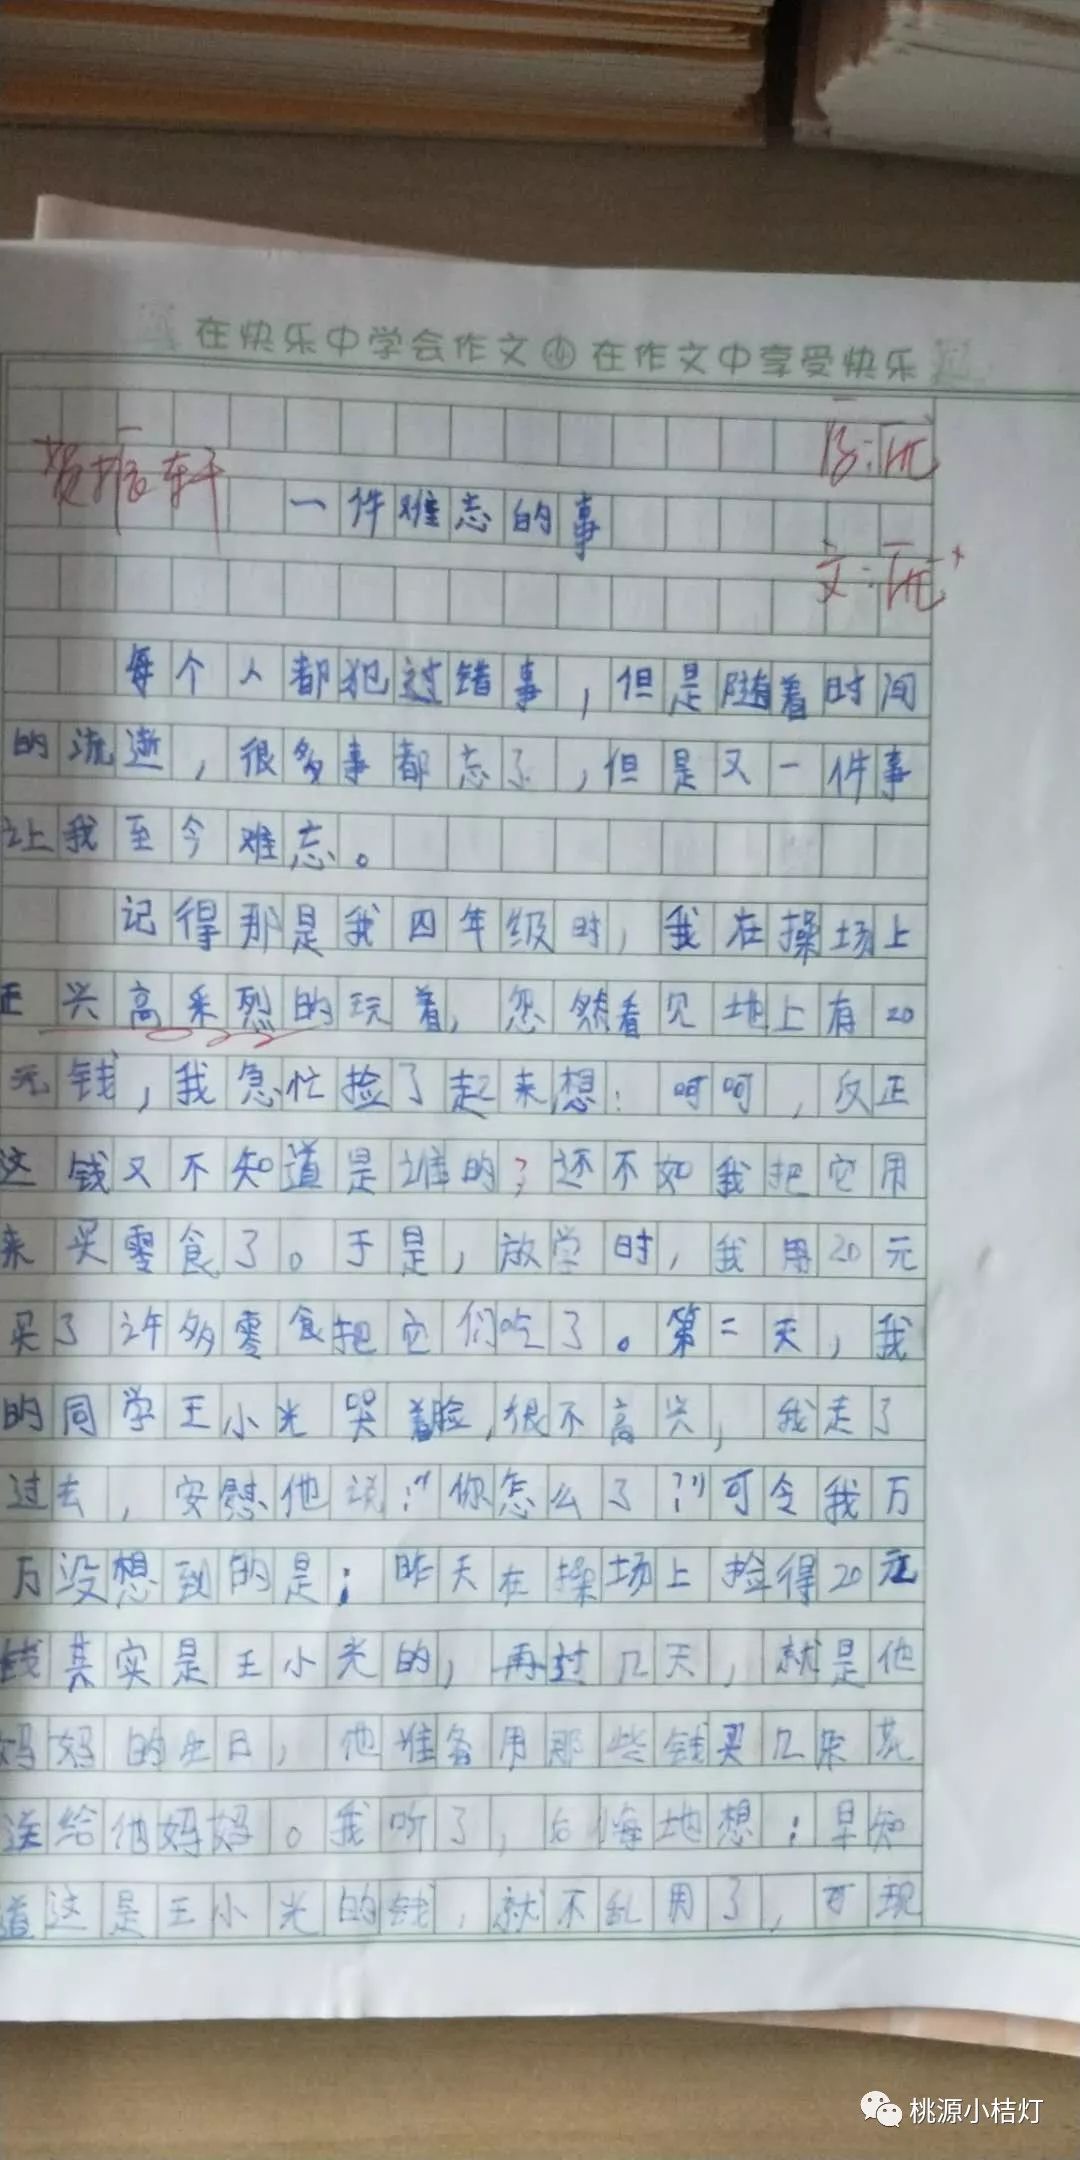 在快乐中学会作文 在作文中享受快乐
一件难忘的事
每个人都犯过错事，但是随着时间
的流逝，很多事都忘了，但是又一件事
让我至今难忘。
记得那是我四年级时，我在操场上
正兴高采烈的玩着，忽然看见地上有20
元钱，我急忙捡了起来想：呵呵，反正
这钱又不知道是谁的？还不如我把它用
来买零食了。于是，放学时，我用20元
买了许多零食把它们吃了。第二天，我
的同学王小光哭着脸，很不高兴，我走了
过去，安慰他说：“你怎么了？”可令我万
万没想到的是；昨天在操场上捡得20元
钱其实是王小光的，再过几天，就是他
妈妈的生日，他准备用那些钱买几朵花
送给他妈妈。我听了，后悔地想：早知
道这是王小光的钱，就不乱用了，可现
桃源小桔灯